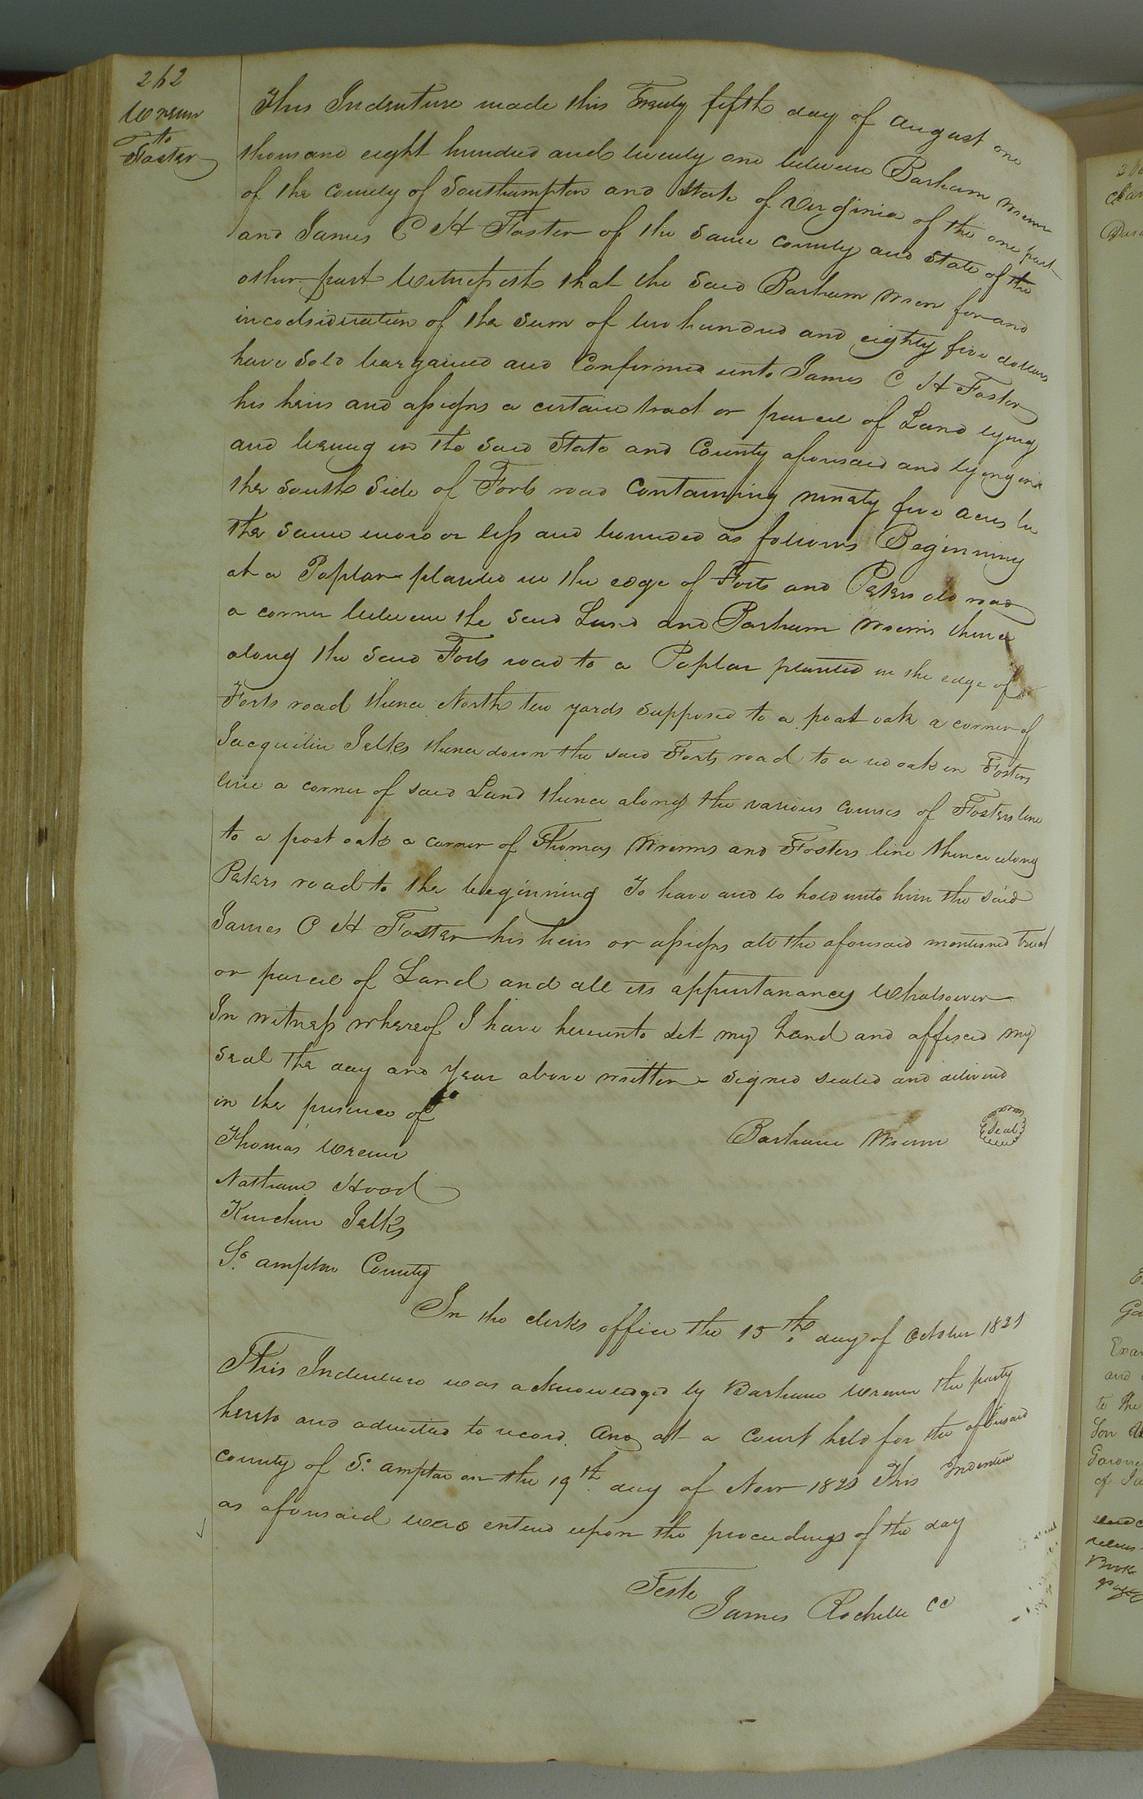 262
Wrenn
to
Foster
This Indenture made this Twenty fifth day of august one
thousand eight hundred and twenty one between Barham Wrenn
of the county of Southampton and State of Virginia of the one part
and James C H Foster of the same county and State of the
other part Witnesseth that the said Barham Wrenn for and
in codsideration of the sum of two hundred and eighty five dollars
have sold bargained and Confirmed unto James C H Foster
his heirs and assigns a certain tract or parcel of Land lying
and being in the said State and County aforesaid and lying on
the South Side of Forts road Containing ninety five acres be
the same more or less and bounded as follows Beginning
at a Poplar planted in the edge of Forts and Peters old road
a corner between the said Land and Barham Wrenns thence
along the said Forts road to a Poplar planted in the edge of
Forts road thence North two yards supposed to a post oak a corner of
Jacquilin Jelks thence down the said Forts road to a red oak in Fosters
line a corner of said Land thence along the various courses of Fosters line
to a post oak a corner of Thomas Wrenns and Fosters line thence along
Peters road to the beginning To have and to hold unto him the said
James C H Foster his heirs or assigns all the aforesaid mentioned tract
or parcel of Land and all its appurtanancy whatsoever
In witness whereof I have hereunto set my hand and affixed my
seal the day and year above written Signed sealed and delivered
in the presence of
Barham Wrenn Seal
Thomas Wrenn
Nathan Hood
Kinchen Jelks
So. ampton County
In the clerks office the 15th day of October 1821
This Indenture was acknowledged by Barham Wrenn the party
hereto and admitted to record. And at a Court held for the aforesaid
County of So. ampton on the 19th day of Novr 1821 This Indenture
as aforesaid was entered upon the proceedings of the day
Teste
James Rochelle CC